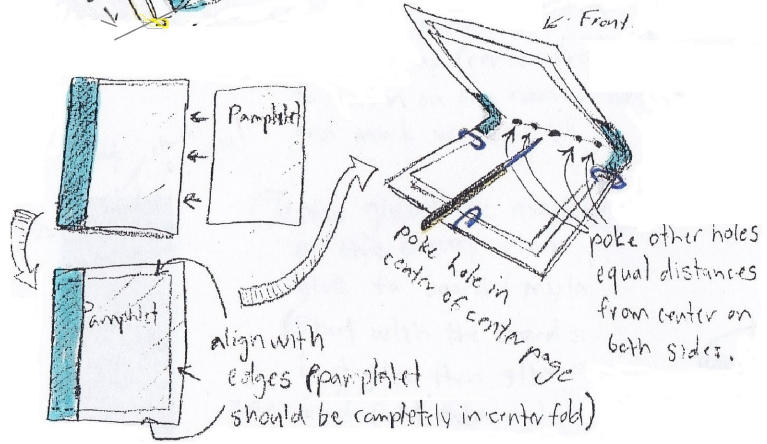 Front.
Pamplatet
Pamphlet
align with
edges (pamplatet
should be completely in center fold)
poke hole in
center of center page
poke other holes
equal distances
from center on
both sides.